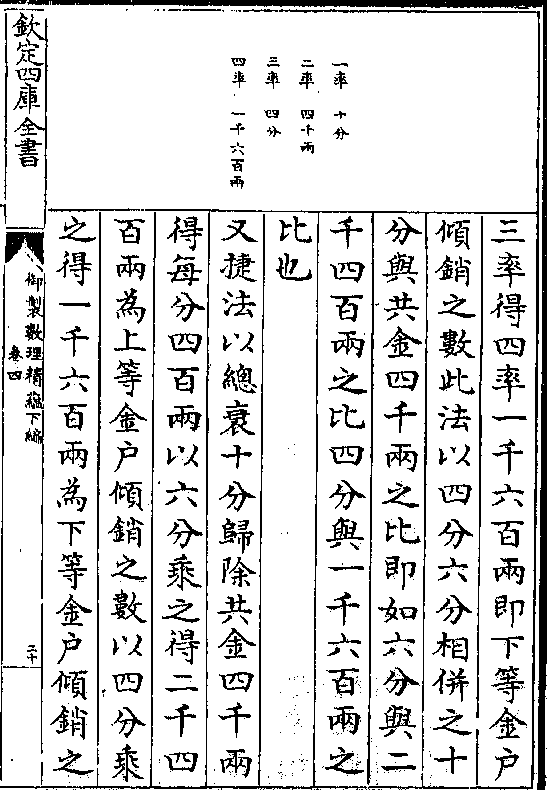 一率 十分
二率 四千兩
三率 四分
四率 一千六百兩
三率得四率一千六百兩即下等金户
傾銷之數此法以四分六分相併之十
分與共金四千兩之比即如六分與二
千四百兩之比四分與一千六百兩之
比也
又捷法以總衰十分歸除共金四千兩
得每分四百兩以六分乘之得二千四
百兩為上等金户傾銷之數以四分乘
之得一千六百兩為下等金户傾銷之
欽定四庫全書
御製數理精蘊下編
卷四
二十